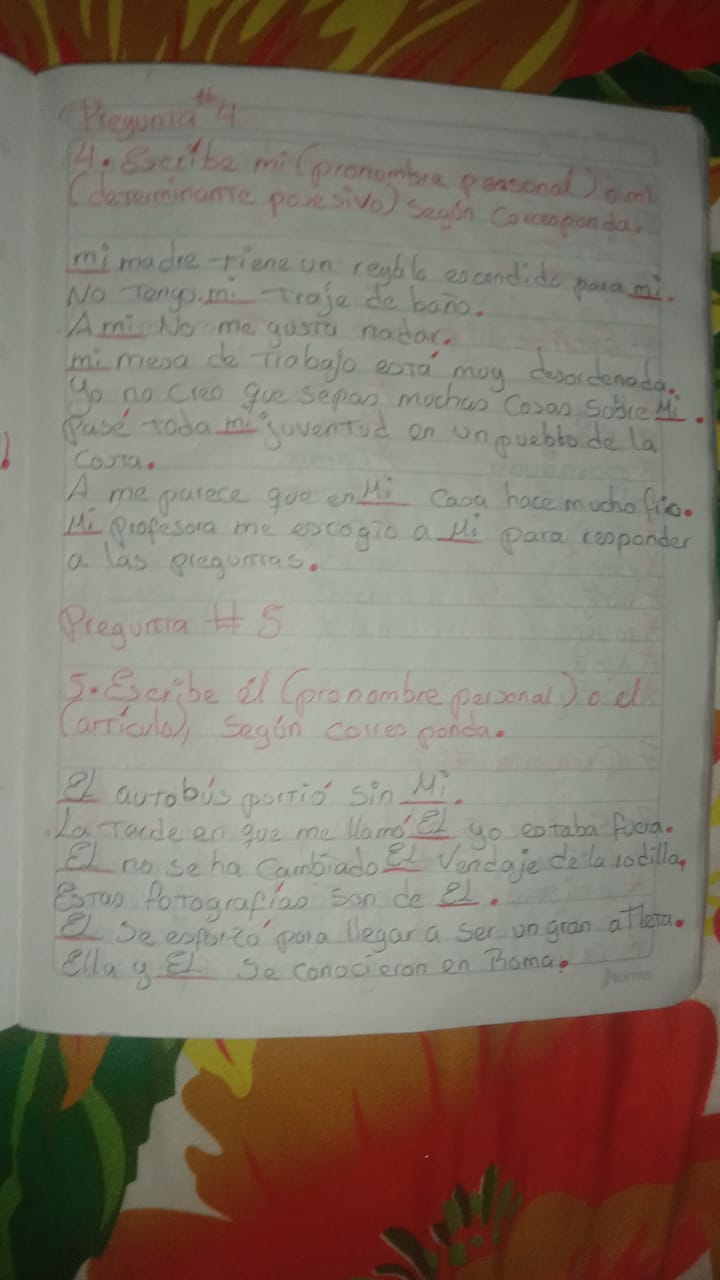 Pregunta #4
4. Escribe mi (pronombre personal) o mi
(determinante posesivo) según corresponda.
mi madre tiene un regalo escondido para mi.
No Tengo mi Traje de baño.
A mi No me gusta nadar.
mi mesa de Trabajo está muy desordenada.
Yo no creo que sepas muchas cosas sobre Mi.
Pasé toda mi juventud en un puebbo de la
Costa.
A me parece que en Mi Casa hace mucho frío.
Mi profesora me escogio a Mi para responder
a las preguntas.
Pregunta # 5
5. Escribe él (pronombre personal) o el
(artículo), según corresponda.
EL autobús partió sin Mi.
La Tarde en que me llamó EL yo estaba fuera.
EL no se ha cambiado EL Vendaje de la rodilla,
Estas fotografías son de EL.
EL se esforzó para llegar a ser un gran atleta.
Ella y EL se conocieron en Roma.
Norma